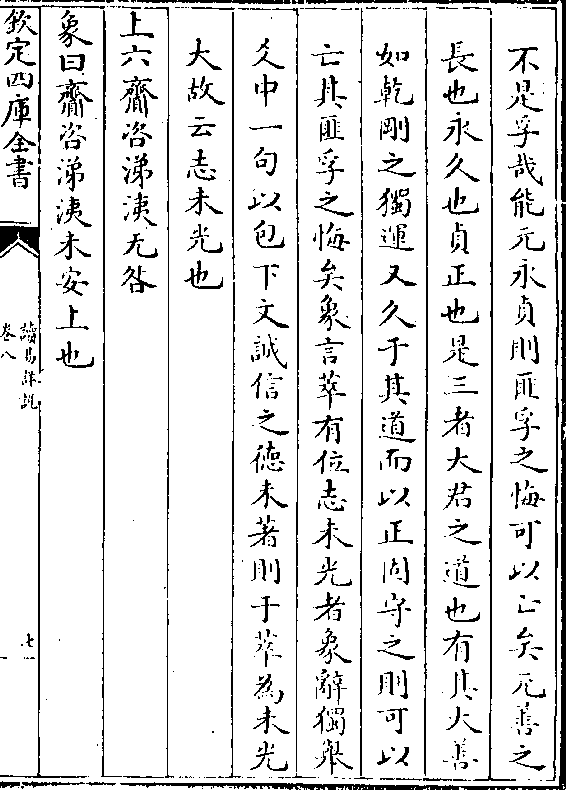 不是孚哉能元永貞則匪孚之悔可以亡矣元善之
長也永久也貞正也是三者大君之道也有其大善
如乾剛之獨運又久于其道而以正固守之則可以
亡其匪孚之悔矣象言萃有位志未光者象辭獨舉
爻中一句以包下文誠信之徳未著則于萃為未光
大故云志未光也
上六齎咨涕洟无咎
象曰齎咨涕洟未安上也
欽定四庫全書
讀易詳説
卷八